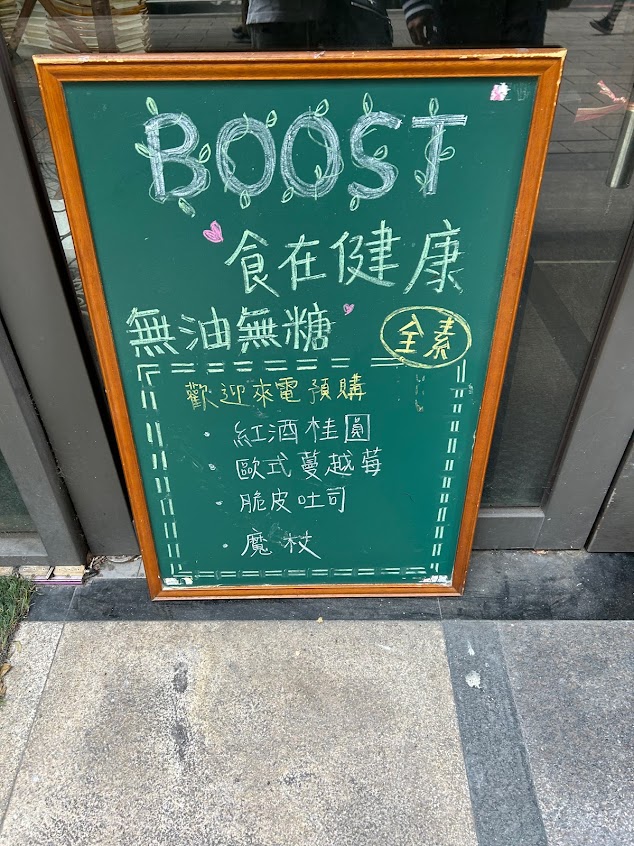 BOOST
食在健康
無油無糖
全素
歡迎來電預購
· 紅酒桂圓
· 歐式蔓越莓
· 脆皮吐司
· 魔杖